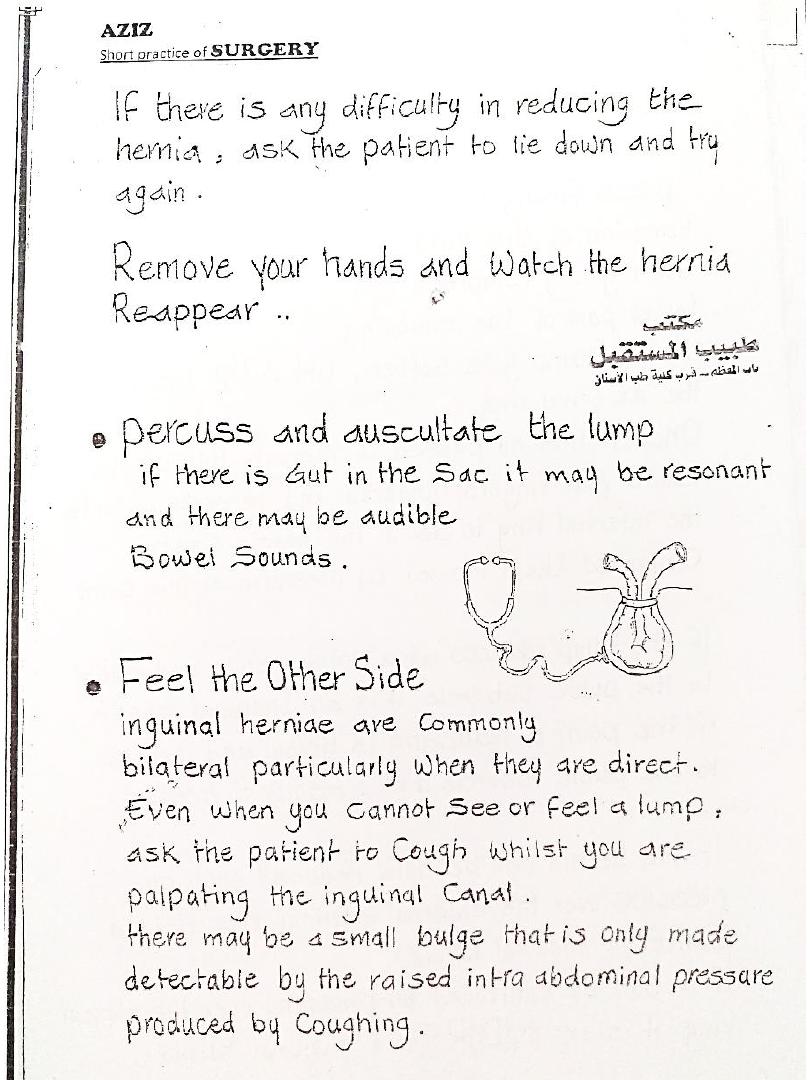 AZIZ
Short practice of SURGERY
If there is any difficulty in reducing the
hernia, ask the patient to lie down and try
again.
Remove your hands and Watch the hernia
Reappear ..
مكتب
طبيب المستقبل
باب المعظم - قرب كلية طب الأسنان
• percuss and auscultate the lump
if there is Gut in the Sac it may be resonant
and there may be audible
Bowel Sounds.
• Feel the Other Side
inguinal herniae are Commonly
bilateral particularly when they are direct.
Even when you cannot See or feel a lump,
ask the patient to Cough whilst you are
palpating the inguinal Canal.
there may be a small bulge that is only made
detectable by the raised intra abdominal pressure
produced by Coughing.